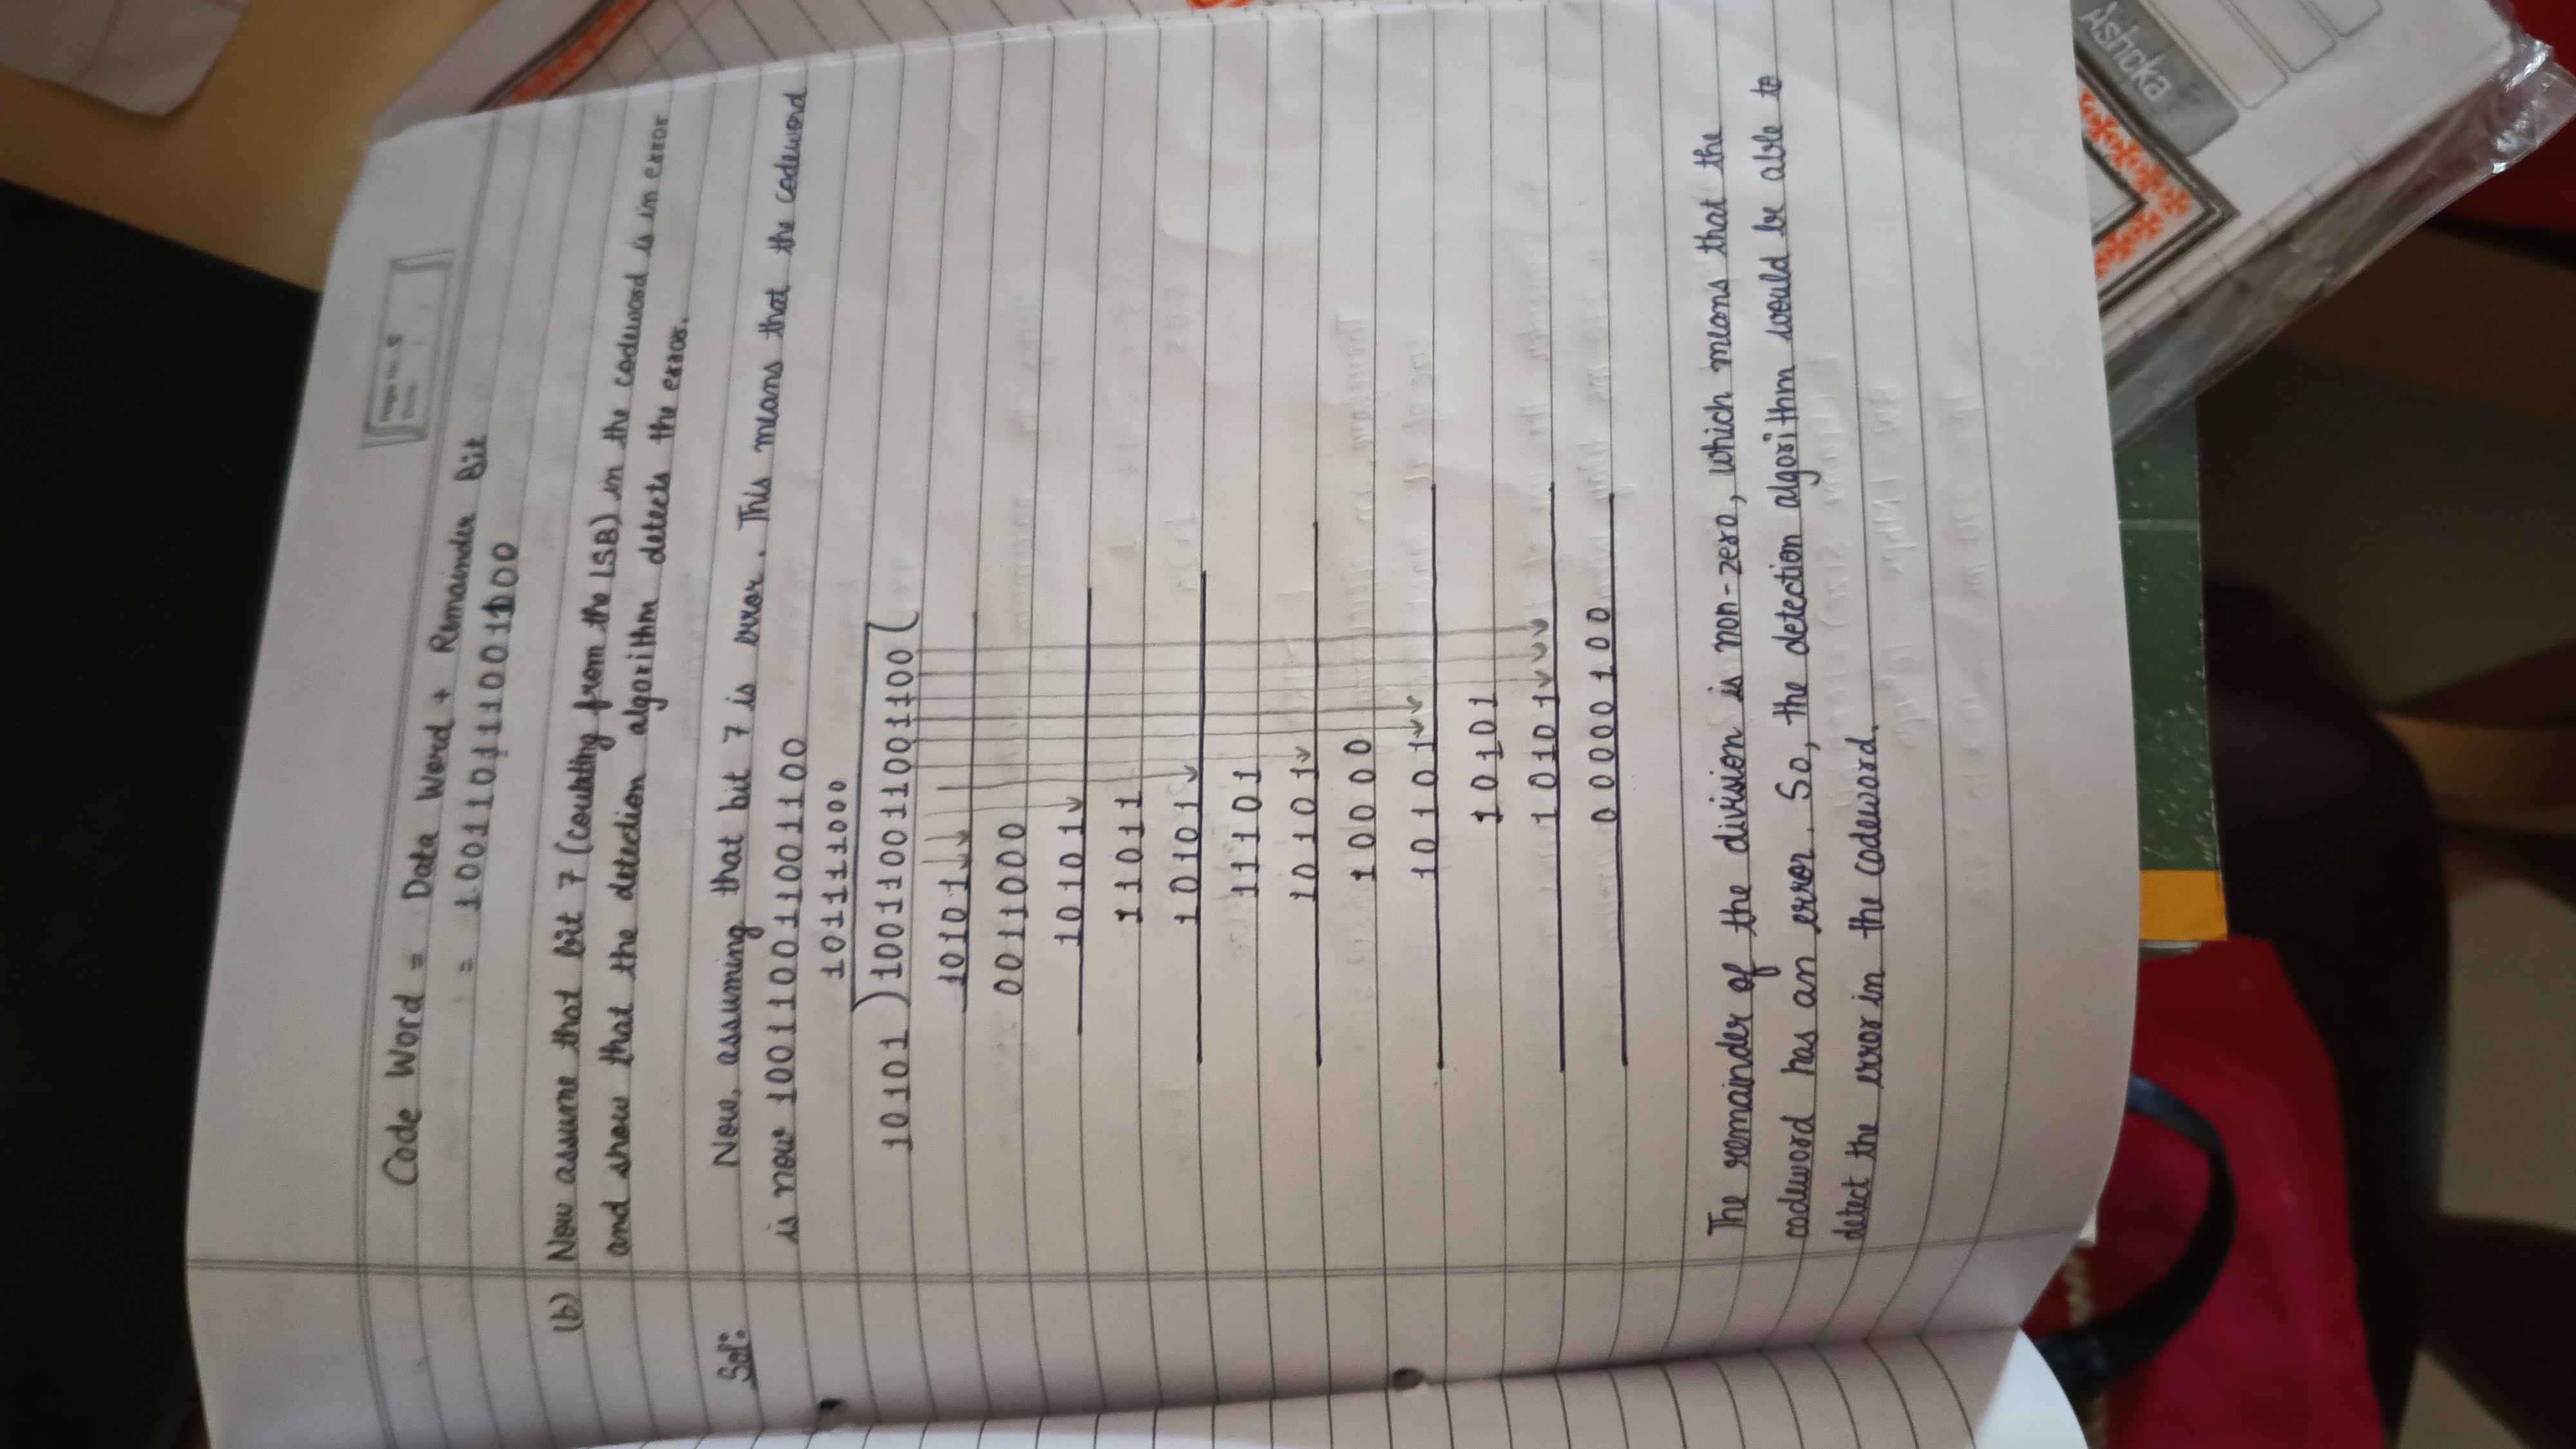 Page No. 5
Date
Code Word = Data Word + Remainder Bit
= 100110111001100
(b) Now assume that bit 7 (counting from the LSB) in the codeword is in error
and show that the detection algorithm detects the error.
Sol:
Now, assuming that bit 7 is error. This means that the codeword
is now 100110011001100
101111000
10101 ) 100110011001100 (
10101
0011000
10101
11011
10101
11101
10101
10000
10101
10101
10101
00000100
The remainder of the division is non-zero, which means that the
codeword has an error. So, the detection algorithm would be able to
detect the error in the codeword.
Ashoka